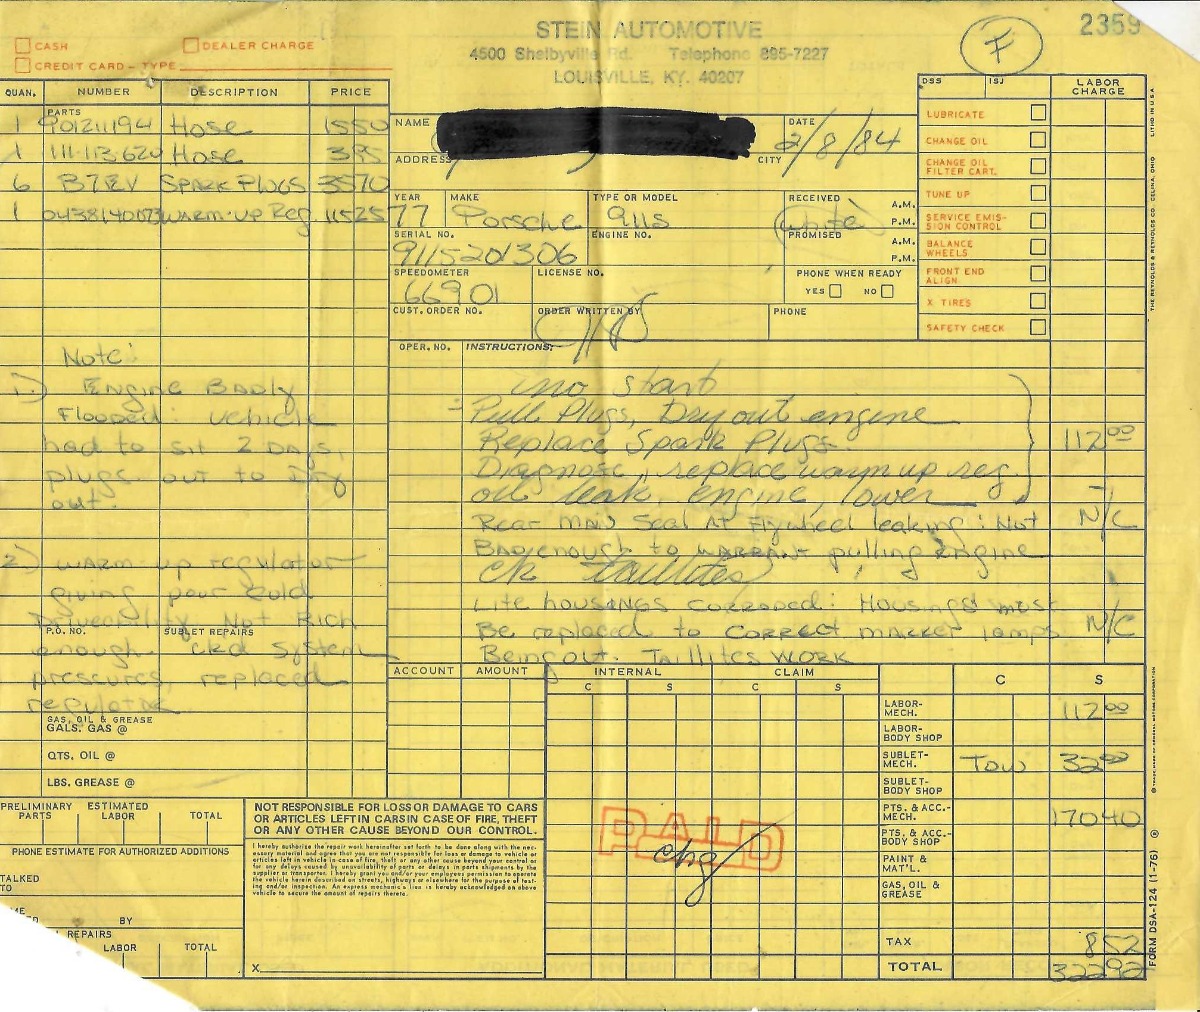 STEIN AUTOMOTIVE
4500 Shelbyville Rd. Telephone 895-7227
LOUISVILLE, KY. 40207
2359
F
CASH
DEALER CHARGE
CREDIT CARD - TYPE
QUAN. NUMBER DESCRIPTION PRICE
PARTS
1 90121194 Hose 1550
1 111-113620 Hose 395
6 B7EV SPARK PLUGS 3570
1 0438140073 WARM-UP Reg 11525
NAME
DATE 2/8/84
ADDRESS
CITY
YEAR 77
MAKE Porsche
TYPE OR MODEL 911s
RECEIVED A.M. P.M.
white
SERIAL NO. 9115201306
ENGINE NO.
PROMISED A.M. P.M.
SPEEDOMETER 66901
LICENSE NO.
PHONE WHEN READY
YES NO
CUST. ORDER NO.
ORDER WRITTEN BY
PHONE
DSS ISJ LABOR CHARGE
LUBRICATE
CHANGE OIL
CHANGE OIL FILTER CART.
TUNE UP
SERVICE EMIS-
SION CONTROL
BALANCE WHEELS
FRONT END ALIGN
X TIRES
SAFETY CHECK
OPER. NO. INSTRUCTIONS:
no start
Pull Plugs, Dry out engine
Replace Spark Plugs. 112 00
Diagnose, replace warm up reg.
oil leak, engine, lower
Rear main Seal At Flywheel leaking: Not N/C
BAD enough to WARRANT pulling engine
ck taillites
Lite housings corroded: Housings must
Be replaced to correct marker lamps N/C
Being out. Taillites WORK
Note:
1.) Engine Badly
Flooded: vehicle
had to sit 2 DAYS,
plugs out to Dry
out.
2.) WARM-up regulator
giving poor cold
Driveability Not Rich
P.O. NO. SUBLET REPAIRS
enough. ckd system
pressures, replaced
regulator
GAS, OIL & GREASE
GALS. GAS @
QTS. OIL @
LBS. GREASE @
ACCOUNT AMOUNT INTERNAL CLAIM
C S C S C S
LABOR-MECH. 112 00
LABOR-BODY SHOP
SUBLET-MECH. Tow 32 00
SUBLET-BODY SHOP
PTS. & ACC.-MECH. 17040
PTS. & ACC.-BODY SHOP
PAINT & MAT'L.
GAS, OIL & GREASE
TAX 852
TOTAL 32292
PAID
chg
PRELIMINARY ESTIMATED
PARTS LABOR TOTAL
PHONE ESTIMATE FOR AUTHORIZED ADDITIONS
TALKED
TO
BY
REPAIRS
LABOR TOTAL
NOT RESPONSIBLE FOR LOSS OR DAMAGE TO CARS
OR ARTICLES LEFT IN CARS IN CASE OF FIRE, THEFT
OR ANY OTHER CAUSE BEYOND OUR CONTROL.
I hereby authorize the repair work hereinafter set forth to be done along with the nec-
essary material and agree that you are not responsible for loss or damage to vehicle or
articles left in vehicle in case of fire, theft or any other cause beyond your control or
for any delays caused by unavailability of parts or delays in parts shipments by the
supplier or transporter. I hereby grant you and/or your employees permission to operate
the vehicle herein described on streets, highways or elsewhere for the purpose of test-
ing and/or inspection. An express mechanic's lien is hereby acknowledged on above
vehicle to secure the amount of repairs thereto.
X
LITHO IN U.S.A.
THE REYNOLDS & REYNOLDS CO. CELINA, OHIO
FORM DSA-124 (1-76)